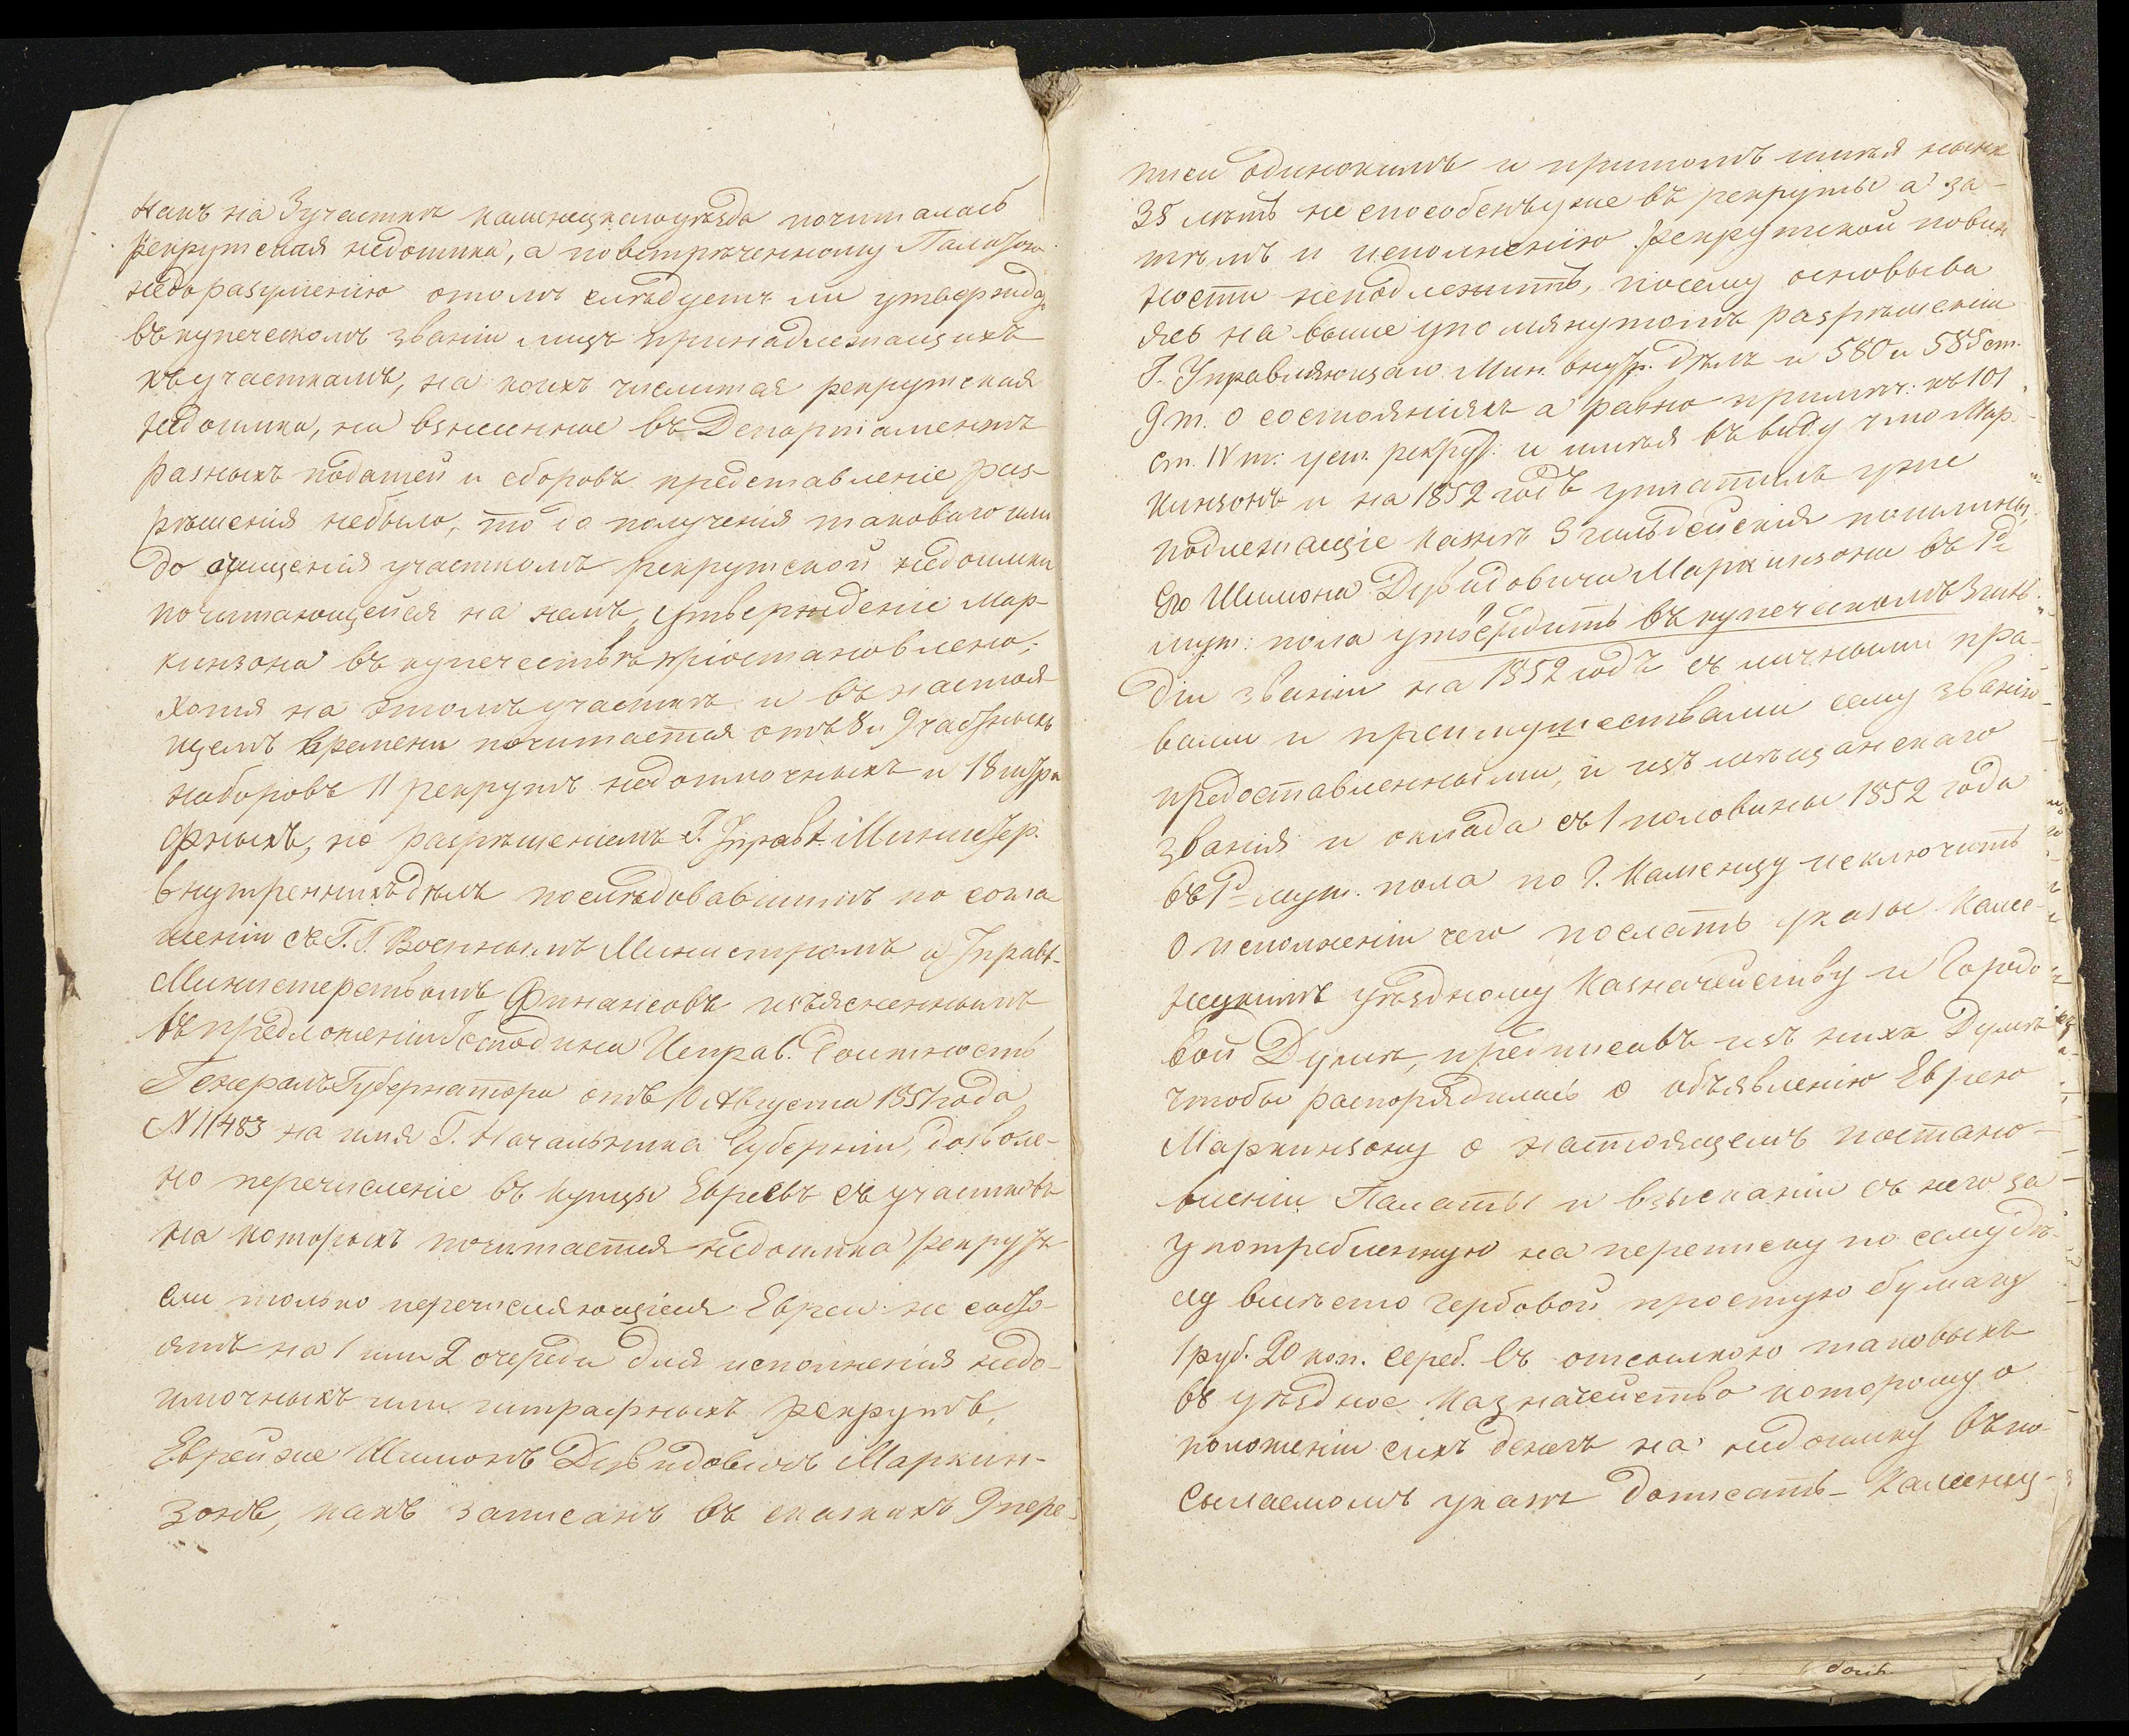 какъ на 3 участкѣ каменецкаго уѣзда почиталась
рекрутская недоимка, а по встрѣченному Палатою
недоразумению о томъ слѣдуетъ ли утверждать
въ купеческомъ званіи лицъ принадлежащихъ
къ участкамъ, на коихъ числится рекрутская
недоимка, на взнесенное въ Департаментъ
разныхъ податей и сборовъ представленіе раз-
рѣшенія небыло, то до полученія таковаго или
до очищенія участкомъ рекрутской недоимки
почитающейся на немъ, утвержденіе Мар-
кинзона въ купечествѣ пріостановлено;
Хотя на этомъ участкѣ и въ настоя-
щемъ времени почитается отъ 8 и 9 частныхъ
наборовъ 11 рекрутъ недоимочныхъ и 18 штра
фныхъ, но разрѣшеніемъ Г. Управл. Министер.
внутреннихъ дѣлъ послѣдовавшимъ по согла
шеніи съ Г. Г. Военнымъ Министромъ и Управл.
Министерствомъ Финансовъ изъясненнымъ
въ предложеніи Господина Исправ. Должность
Генералъ Губернатора отъ 10 Августа 1851 года
N 11483 на имя Г. Начальника Губерніи, дозволе-
но перечисленіе въ купцы Евреевъ съ участковъ
на которыхъ почитается недоимка рекрутъ
если только перечисляющіеся Евреи не состо-
ятъ на 1 или 2 очереди для исполненія недо-
имочныхъ или штрафныхъ рекрутъ,
Еврей же Шимонъ Дувидовичъ Маркин-
зонъ, какъ записанъ въ сказкахъ 9 пере-
писи одинокимъ и притомъ имѣя нынѣ
35 лѣтъ не способенъ уже въ рекруты а за-
тѣмъ и исполненію рекрутской повин
ности неподлежитъ, посему основыва
ясь на выше упомянутомъ разрѣшеніи
Г. Управляющаго Мин. внутр. дѣлъ и 580 и 585 ст.
9 т. о состояніяхъ а равно примѣч: къ 101
ст. IV т: уст. рекрут: и имѣя въ виду что Мар-
кинзонъ и на 1852 годъ уплатилъ уже
подлежащіе казнѣ 3 гильдейскія повинны,
Его Шимона Дувидовича Маркинзона въ 1й
муж: пола утвердить въ купеческомъ 3 гиль-
діи званіи на 1852 годъ съ личными пра-
вами и преимуществами сему званію
предоставленными, и изъ мѣщанскаго
званія и оклада съ 1 половины 1852 года
въ 1й муж. пола по Г. Каменцу исключить
О исполненіи чего послать указы Каме-
нецкимъ уѣздному Казначейству и Городо
вой Думѣ, предписавъ изъ нихъ Думѣ
чтобы распорядилась о объявленію Еврею
Маркинзону о настоящемъ постано-
вленіи Палаты и взысканіи съ него за
употребленную на переписку по сему дѣ-
лу вмѣсто гербовой простую бумагу
1 руб. 20 коп. сереб. съ отсылкою таковыхъ
въ уѣздное казначейство которому о
положеніи сихъ денегъ на недоимку въ по-
сылаемомъ указѣ дописать Каменец-